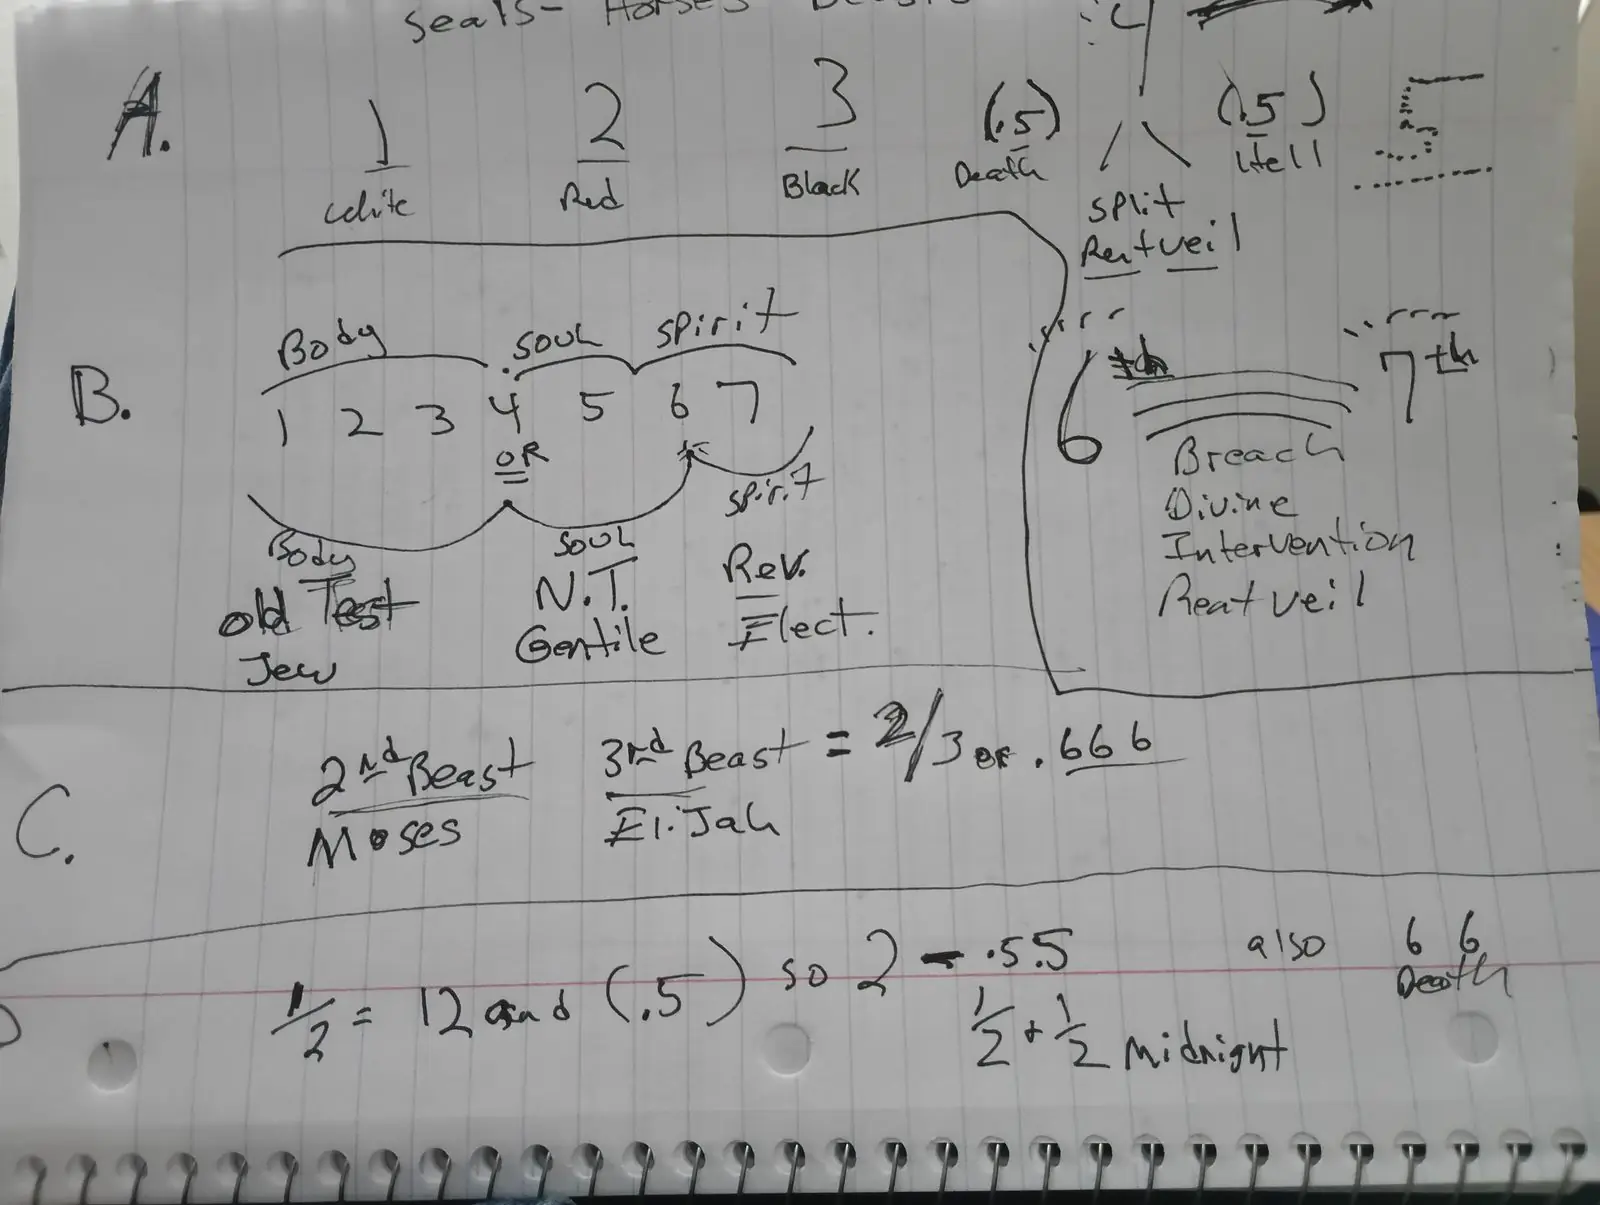 Seals - Horses Beasts
:4
A.
1 2 3 (.5) (.5) 5
White Red Black Death Hell
split
Rentveil
B.
Body soul spirit
1 2 3 4 5 6 7
OR
Body soul spirit
old Test N.T. Rev.
Jew Gentile Elect.
6th 7th
Breach
Divine
Intervention
Rentveil
C.
2nd Beast 3rd Beast = 2/3 or .666
Moses Elijah
1/2 = 12 and (.5) so 2 - .5.5 also 6 6
Death
1/2 + 1/2 Midnight